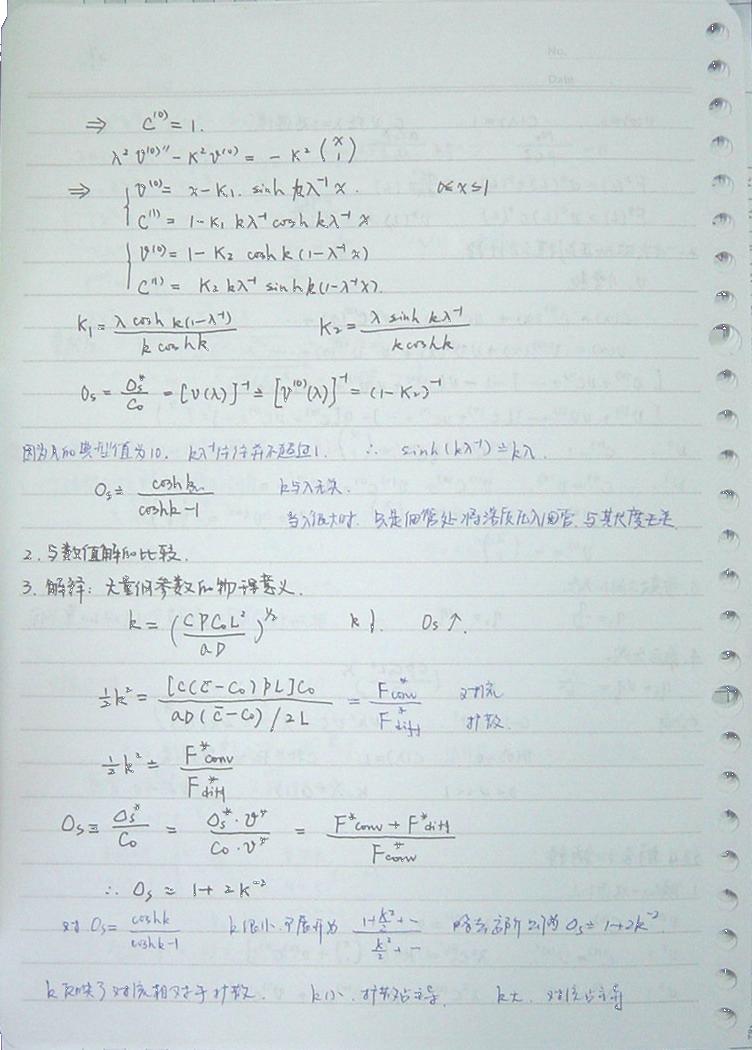 No.
Date
⇒ C⁽⁰⁾ = 1.
λ² v⁽⁰⁾″ − K² v⁽⁰⁾ = − K² (x 1)
⇒ { v⁽⁰⁾ = x − K₁. sinh kλ⁻¹ x. 0≤x≤1
C⁽¹⁾ = 1 − K₁ kλ⁻¹ cosh kλ⁻¹ x
{ v⁽⁰⁾ = 1 − K₂ cosh k (1−λ⁻¹x)
C⁽¹⁾ = K₂ kλ⁻¹ sinh k(1−λ⁻¹x).
K₁ = λ cosh k(1−λ⁻¹) / k cosh k K₂ = λ sinh kλ⁻¹ / k cosh k
Os = Os* / C₀ = [v(λ)]⁻¹ ≐ [v⁽⁰⁾(λ)]⁻¹ = (1−K₂)⁻¹
因为λ的典型值为10, kλ⁻¹往往并不超过1. ∴ sinh(kλ⁻¹) ≐ kλ
Os ≐ cosh k / cosh k −1 k与λ无关.
当λ很大时, 只是细管处将溶质压入细管, 与其尺度无关
2. 与数值解的比较.
3. 解释: 无量纲参数的物理意义.
k = (CPC₀L² / aD)^½ k↓ Os↑.
½k² = [C(c̄−C₀)PL]C₀ / aD(c̄−C₀)/2L = F*conv / F*diff 对流 扩散.
½k² ≐ F*conv / F*diff
Os ≡ Os* / C₀ = Os*·v* / C₀·v* = F*conv + F*diff / F*conv
∴ Os ≈ 1+2k⁻²
对 Os = cosh k / cosh k −1 k很小, 可展开为 1+k²/2+… / k²/2+… 略去高阶 则为 Os ≐ 1+2k⁻².
k反映了对流相对于扩散. k小, 扩散占主导. k大, 对流占主导